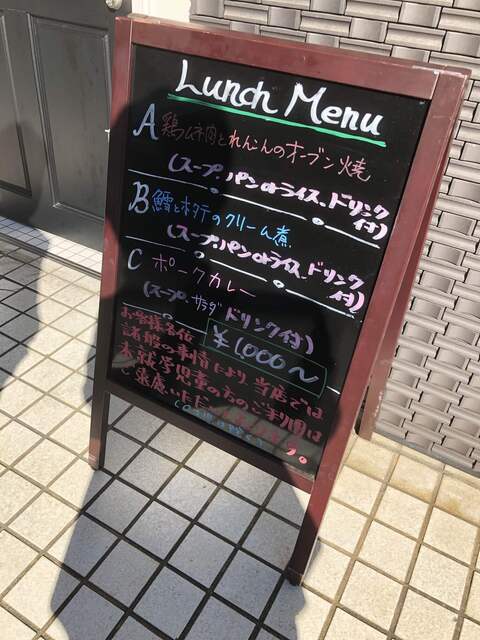 Lunch Menu
A 鶏ムネ肉とれんこんのオーブン焼
(スープ、パンorライス、ドリンク付)
B 鱈とホタテのクリーム煮
(スープ、パンorライス、ドリンク付)
C ポークカレー
(スープ、サラダ ドリンク付)
¥1,000〜
お客様各位
諸般の事情により、当店では
未就学児童の方のご利用は
ご遠慮いただ